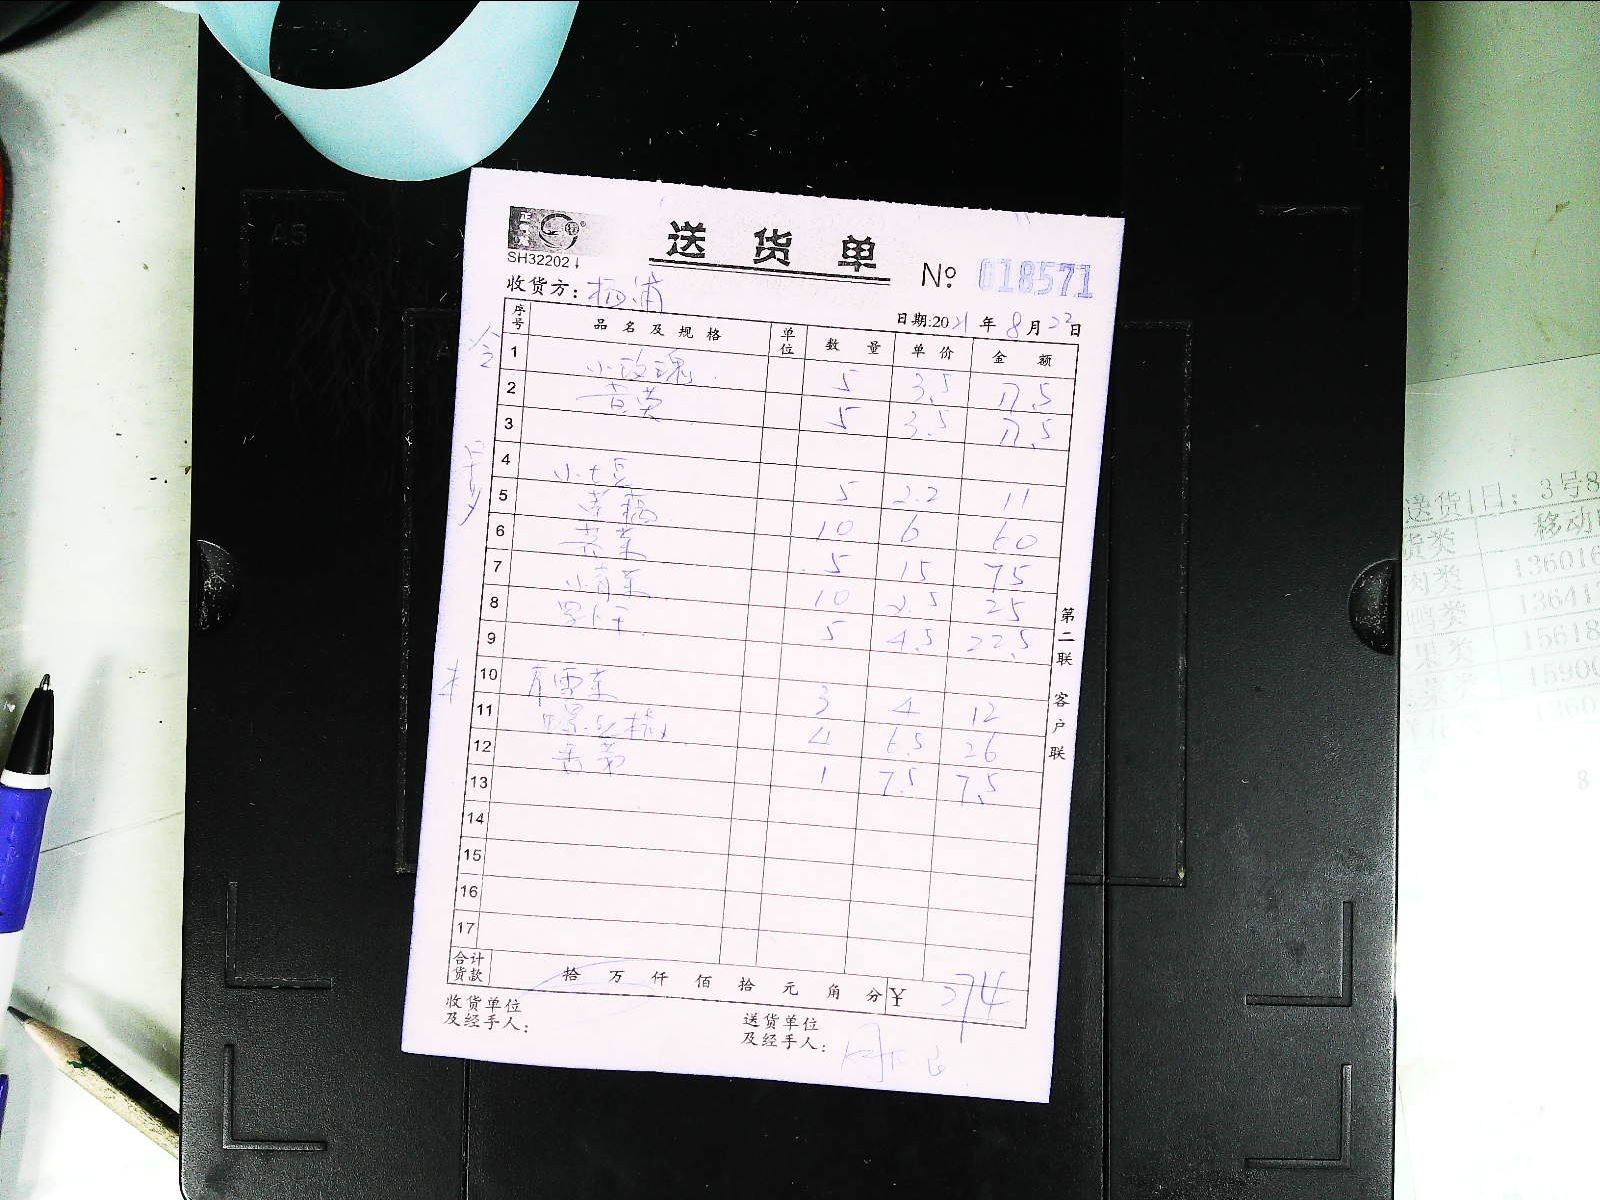 送货单
SH32202
№ 018571
收货方: 杨浦
日期:2021年8月22日
序号 品名及规格 单位 数量 单价 金额
1 小玫瑰 5 3.5 17.5
2 黄 5 3.5 17.5
3
4 小土豆 5 2.2 11
5 藕 10 6 60
6 菜 5 15 75
7 小青菜 10 2.5 25
8 罗卜干 5 4.5 22.5
9
10 菜 3 4 12
11 螺丝椒 4 6.5 26
12 香 1 7.5 7.5
13
14
15
16
17
合计货款 拾 万 仟 佰 拾 元 角 分 ¥ 274
收货单位及经手人:
送货单位及经手人:
第二联 客户联
A5
送货日: 3号8
货类 移动
肉类 13601
鸭类 13641
果类 15618
菜类 1590
8